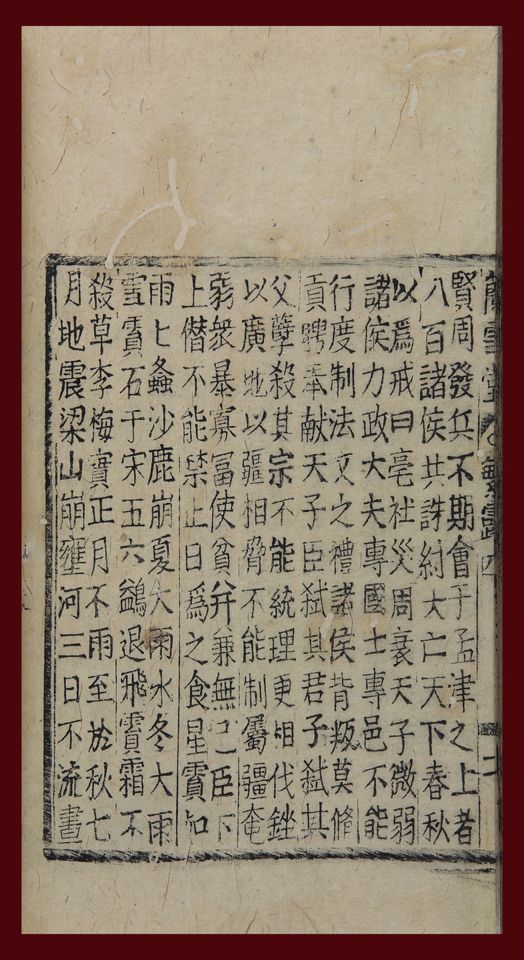 蘭雪堂 春秋繁露八
賢周發兵不期會于孟津之上者
八百諸侯共誅紂大亡天下春秋
以爲戒曰亳社災周衰天子微弱
諸侯力政大夫專國士專邑不能
行度制法文之禮諸侯背叛莫脩
貢聘奉献天子臣弑其君子弑其
父孽殺其宗不能統理更相伐銼
以廣地以疆相脅不能制屬疆奄
弱衆暴寡富使貧并兼無已臣下
上僣不能禁止日爲之食星霣如
雨七螽沙鹿崩夏大雨水冬大雨
雪霣石于宋五六鷁退飛霣霜不
殺草李梅實正月不雨至於秋七
月地震梁山崩壅河三日不流晝